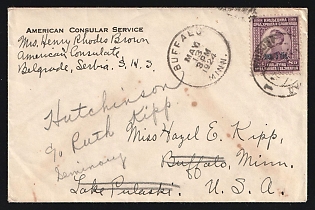 AMERICAN CONSULAR SERVICE
Mrs. Henry Rhodes Brown
American Consulate,
Belgrade, Serbia, S.H.S.
BUFFALO
MAY
MINN.
Hutchinson
c/o Ruth Kipp
Seminary
Miss Hazel E. Kipp,
Buffalo, Minn.
Lake Pulaski.
U. S. A.